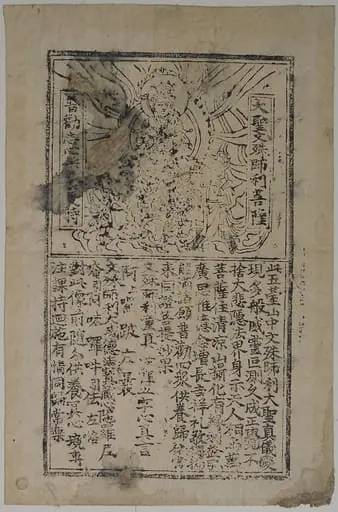 大聖文殊師利菩薩
普勸志心供養受持
此五臺山中文殊師利大聖真儀變
現多般威靈叵測久成正覺不
捨大悲隱法界身示天人相與萬
菩薩住清涼山攝化有緣利益弘
廣思惟憶念增長吉祥禮敬稱揚
能滿諸願普勸四眾供養歸依當
來同證菩提妙果
文殊師利童真菩薩五字心真言
阿上囉跛左曩
文殊師利大威德法寶藏心陀羅尼
唵引阿味囉吽引佉左洛
對此像前隨分供養冀以心專
注課持迴施有情同歸常樂